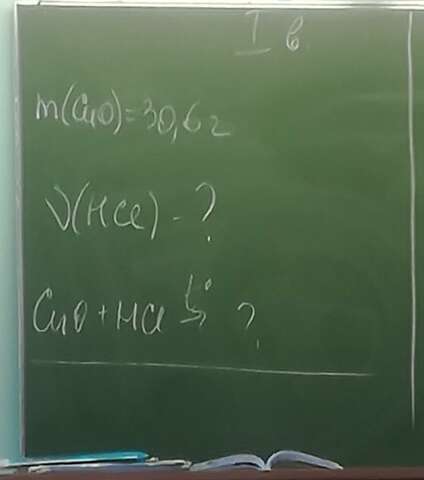 I в.
m(CuO)=30,6г
ν(HCl) - ?
CuO + HCl →t° ?